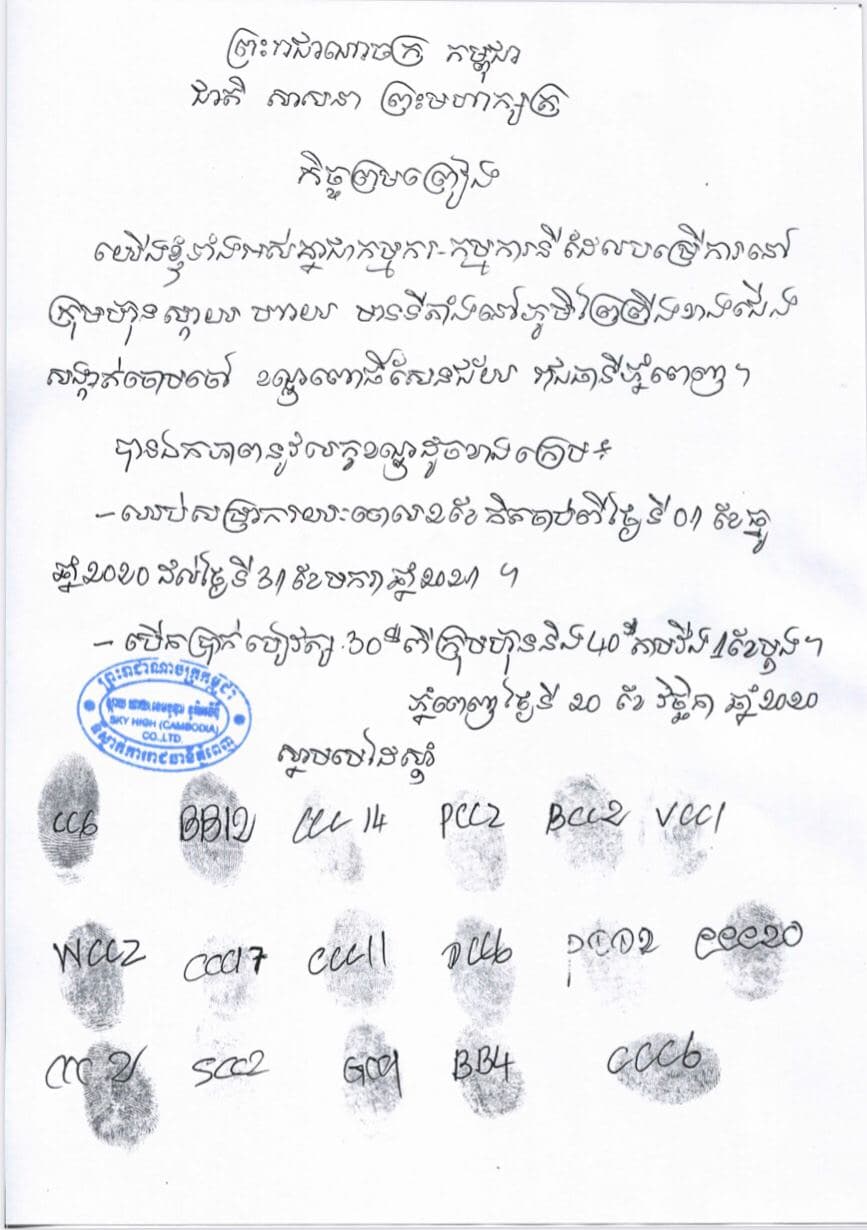 ព្រះរាជាណាចក្រ កម្ពុជា
ជាតិ សាសនា ព្រះមហាក្សត្រ
កិច្ចព្រមព្រៀង
យើងខ្ញុំទាំងអស់គ្នាជាកម្មករ-កម្មការនី ដែលបម្រើការនៅ
ក្រុមហ៊ុនស្កាយ ហាយ មានទីតាំងនៅភូមិព្រៃព្រីងខាងជើង
សង្កាត់ចោមចៅ ខណ្ឌពោធិ៍សែនជ័យ រាជធានីភ្នំពេញ។
បានឯកភាពនូវលក្ខខណ្ឌដូចខាងក្រោម៖
- ឈប់សម្រាករយៈពេល ២ខែ គិតចាប់ពីថ្ងៃទី 01 ខែធ្នូ
ឆ្នាំ២០២០ ដល់ថ្ងៃទី 31 ខែមករា ឆ្នាំ២០២1 ។
- បើកប្រាក់បៀវត្ស 30$ ពីក្រុមហ៊ុននិង 40$ តាមវីង 1ខែម្ដង។
ភ្នំពេញថ្ងៃទី ២០ ខែ វិច្ឆិកា ឆ្នាំ២០២០
ព្រះរាជាណាចក្រកម្ពុជា
SKY HIGH (CAMBODIA)
CO.,LTD.
ស្នាមមេដៃស្តាំ
CC6 BB12 CCC 14 PCC2 BCC2 VCC1
WCC2 CCC17 CCC11 DCC6 CCC20
CCC 2 SCC2 GCC1 BB4 CCC6